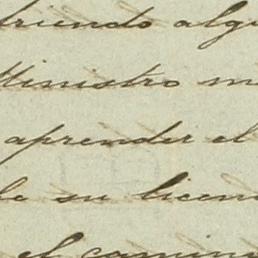 friendo algu
Ministro m
aprender el
de su licen
el camin